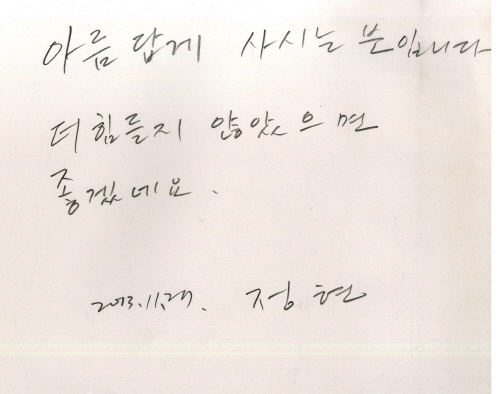 아름답게 사시는 분입니다
더 힘들지 않았으면
좋겠네요.
2013.11.27. 정현